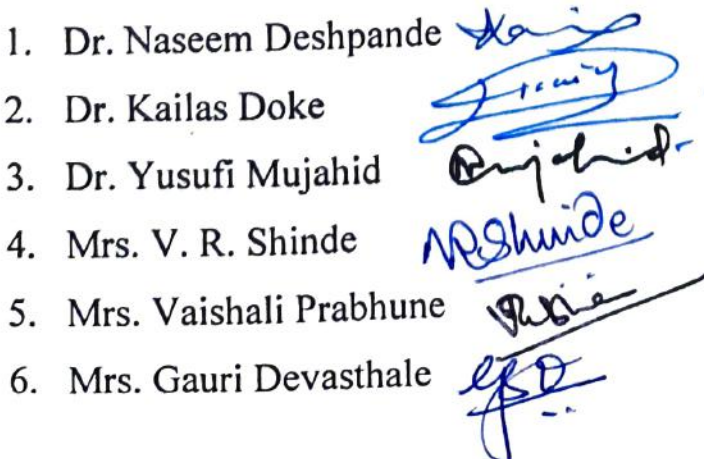 1. Dr. Naseem Deshpande
2. Dr. Kailas Doke
3. Dr. Yusufi Mujahid Mujahid.
4. Mrs. V. R. Shinde VRShinde
5. Mrs. Vaishali Prabhune
6. Mrs. Gauri Devasthale